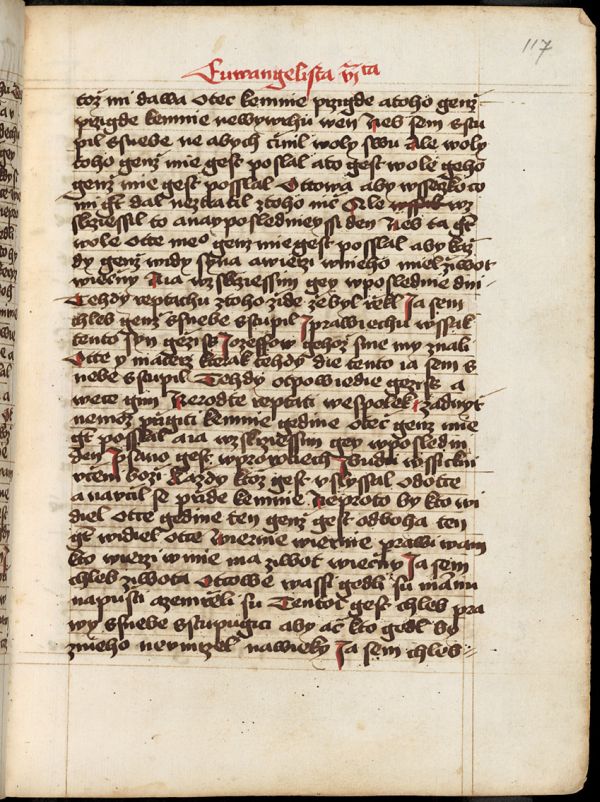 117
Euwangelista
toż mi dawa otec kemnie przigde atoho genż
przigde kemnie newywrhu wen Neb sem sstu
pil snebe ne abych cinil woly swu Ale woly
toho genż mie gest poslal ato gest wole geho
genż mie gest posslal Ottowa aby wsseczko co
mi gt dal neztratil ztoho nic Ale wz
skrziessil to anayposledniey ssi den Neb ta gt
wole otte meo genż mie gest posslal aby każ
dy genż widy syna awierzi wnieho miel żiwot
wiecny Aia wzskrziessim gey wposlednie dni
Tehdy reptachu ztoho żide że byl rzekl Ja sem
chleb genż snebe sstupil Iprawiechu wssak
tento syn gezissi Jozeffow gehoż sme my znali
Otte y materz kterak tehdy die tento ia sem s
nebe sstupil Tehdy otpowiedie geziss a
wece gim Nerodte reptati wespolek żadnyt
nemoż przigiti kemnie gedine otec genż mie
gt posslal aia wzskrziessim gey wposledni
den Psano gest wprorociech Ibudu wssickni
vceni bożi Każdy ktoż gest vslyssal odotce
anaucil se przide kemnie Neproto by kto wi
diel otce gedine ten genż gest odboha ten
gt widiel otce Wiernie wiernie prawi wam
kto wierzi wmie ma żiwot wiecny Ja sem
chleb żiwota Ottowe wassi gedli su mannu
napusti azemrzeli su Tentoc gest chleb pra
wy snebe sstupugici aby ac kto gedl by
znieho neumrzel nawieky Ja sem chleb